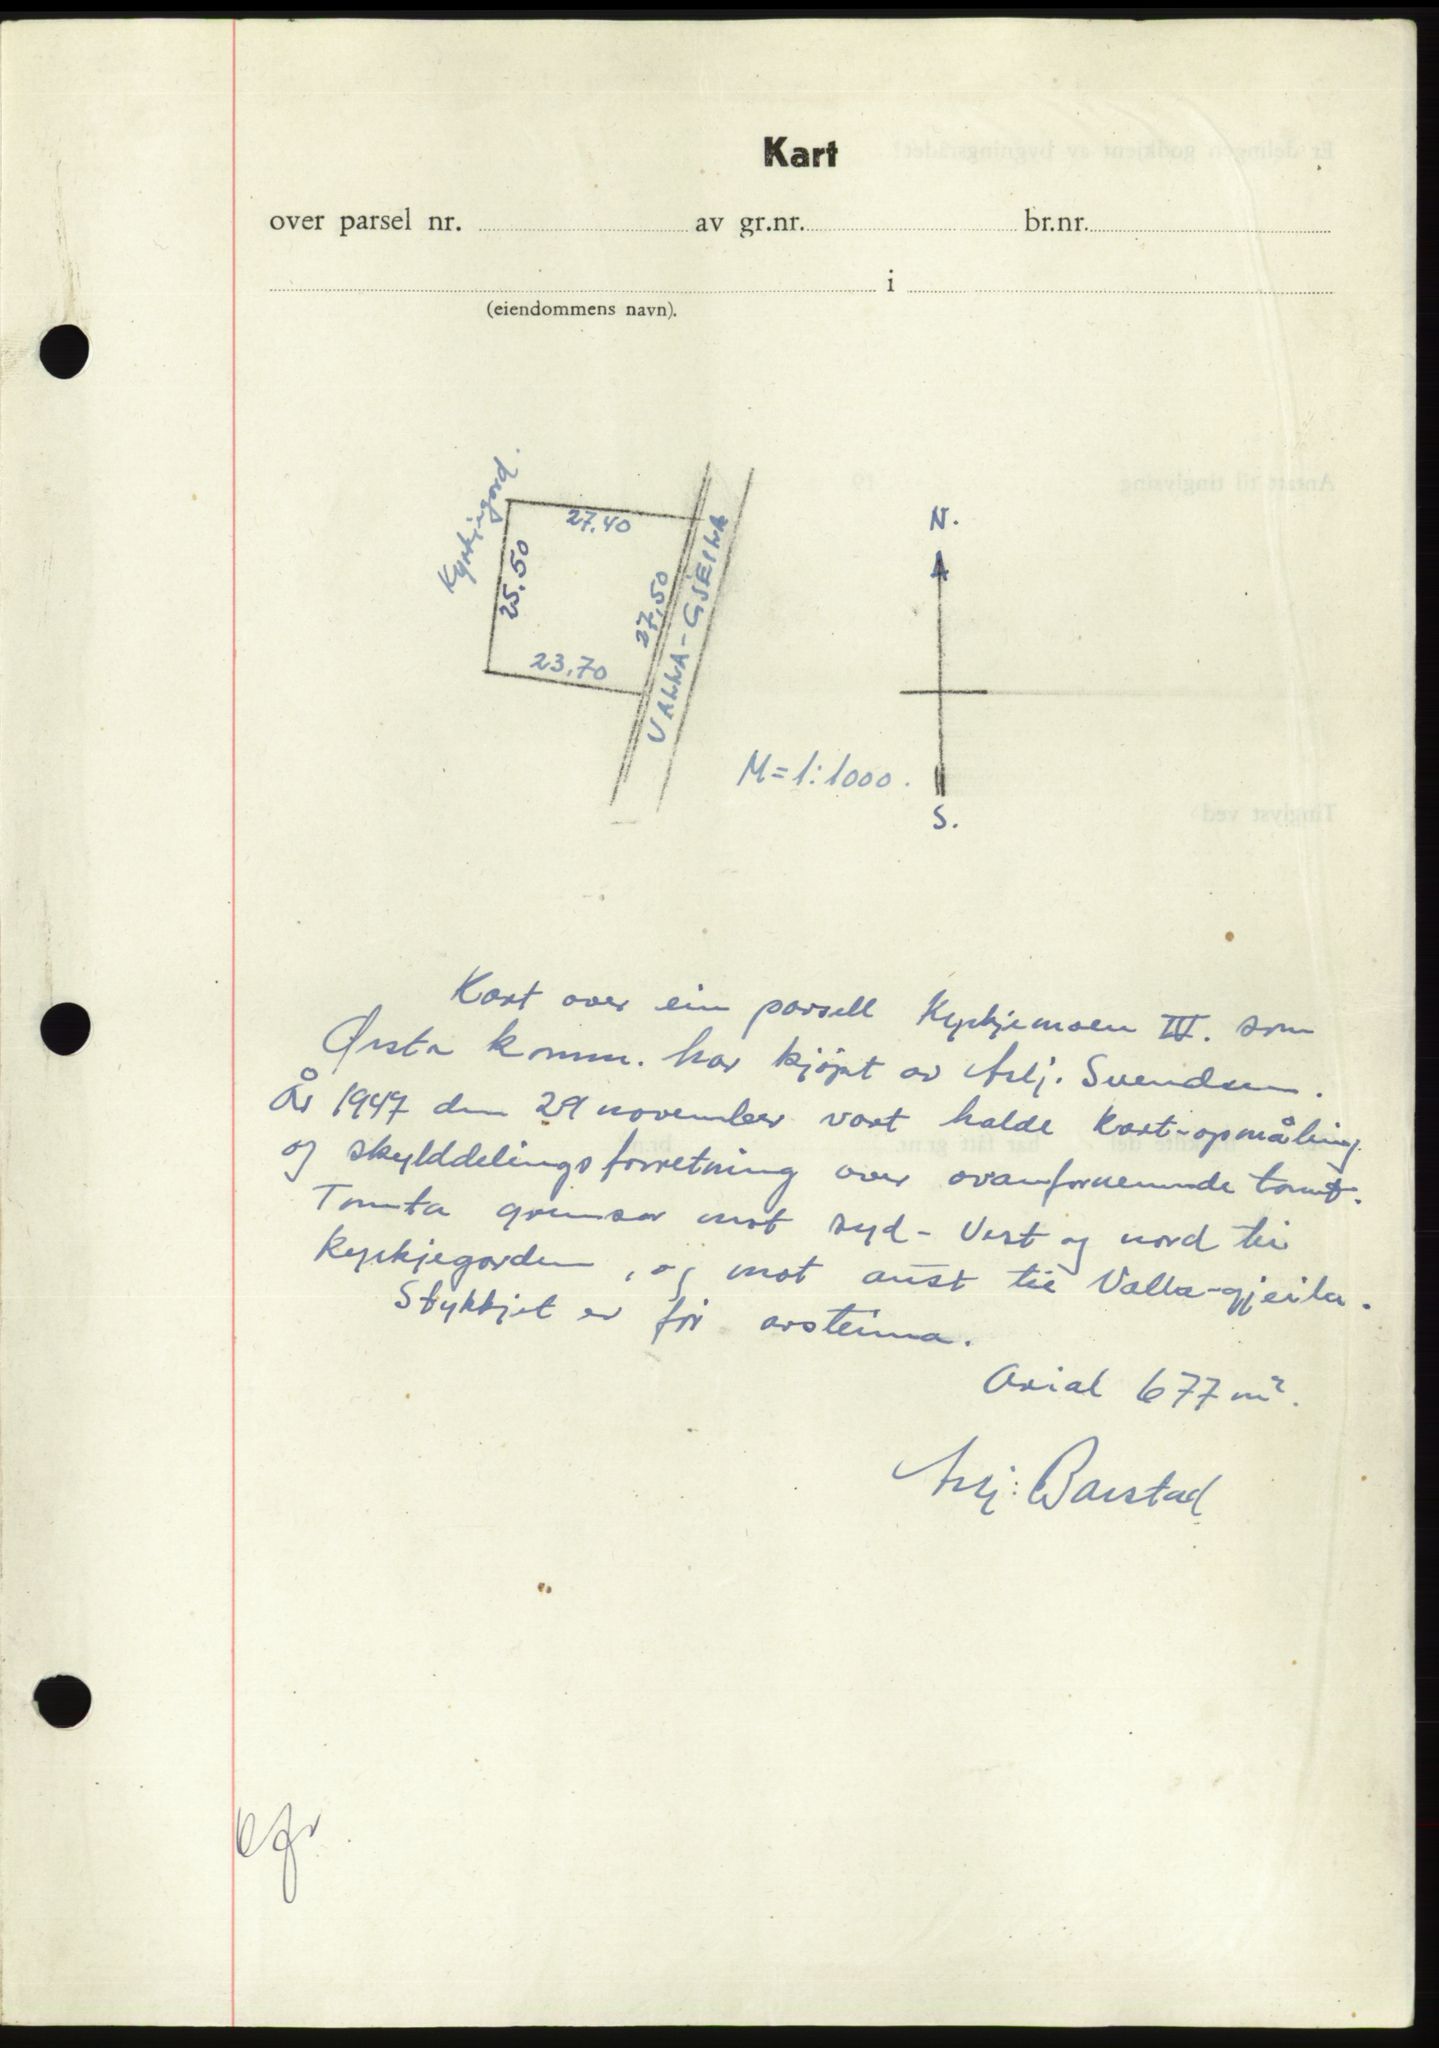 Kart
over parsel nr. av gr.nr. br.nr.
i
(eiendommens navn).
Kyrkjegord.
27.40
25.50
27.50
23.70
VALLA-GJEILA
N.
S.
M=1:1000.
Kart over ein parsell Kyrkjemoen IV. som
Ørsta komm. har kjøpt av Asbj. Svendsen.
År 1947 den 29 november vart halde kart-opmåling
og skylddelingsforretning over ovanfornemnde tomt.
Tomta grensar mot syd-Vest og nord til
kyrkjegorden, og mot aust til Valla-gjeila.
Stykkjet er for arsteinna.
Arial 677 m².
Asbj: Barstad